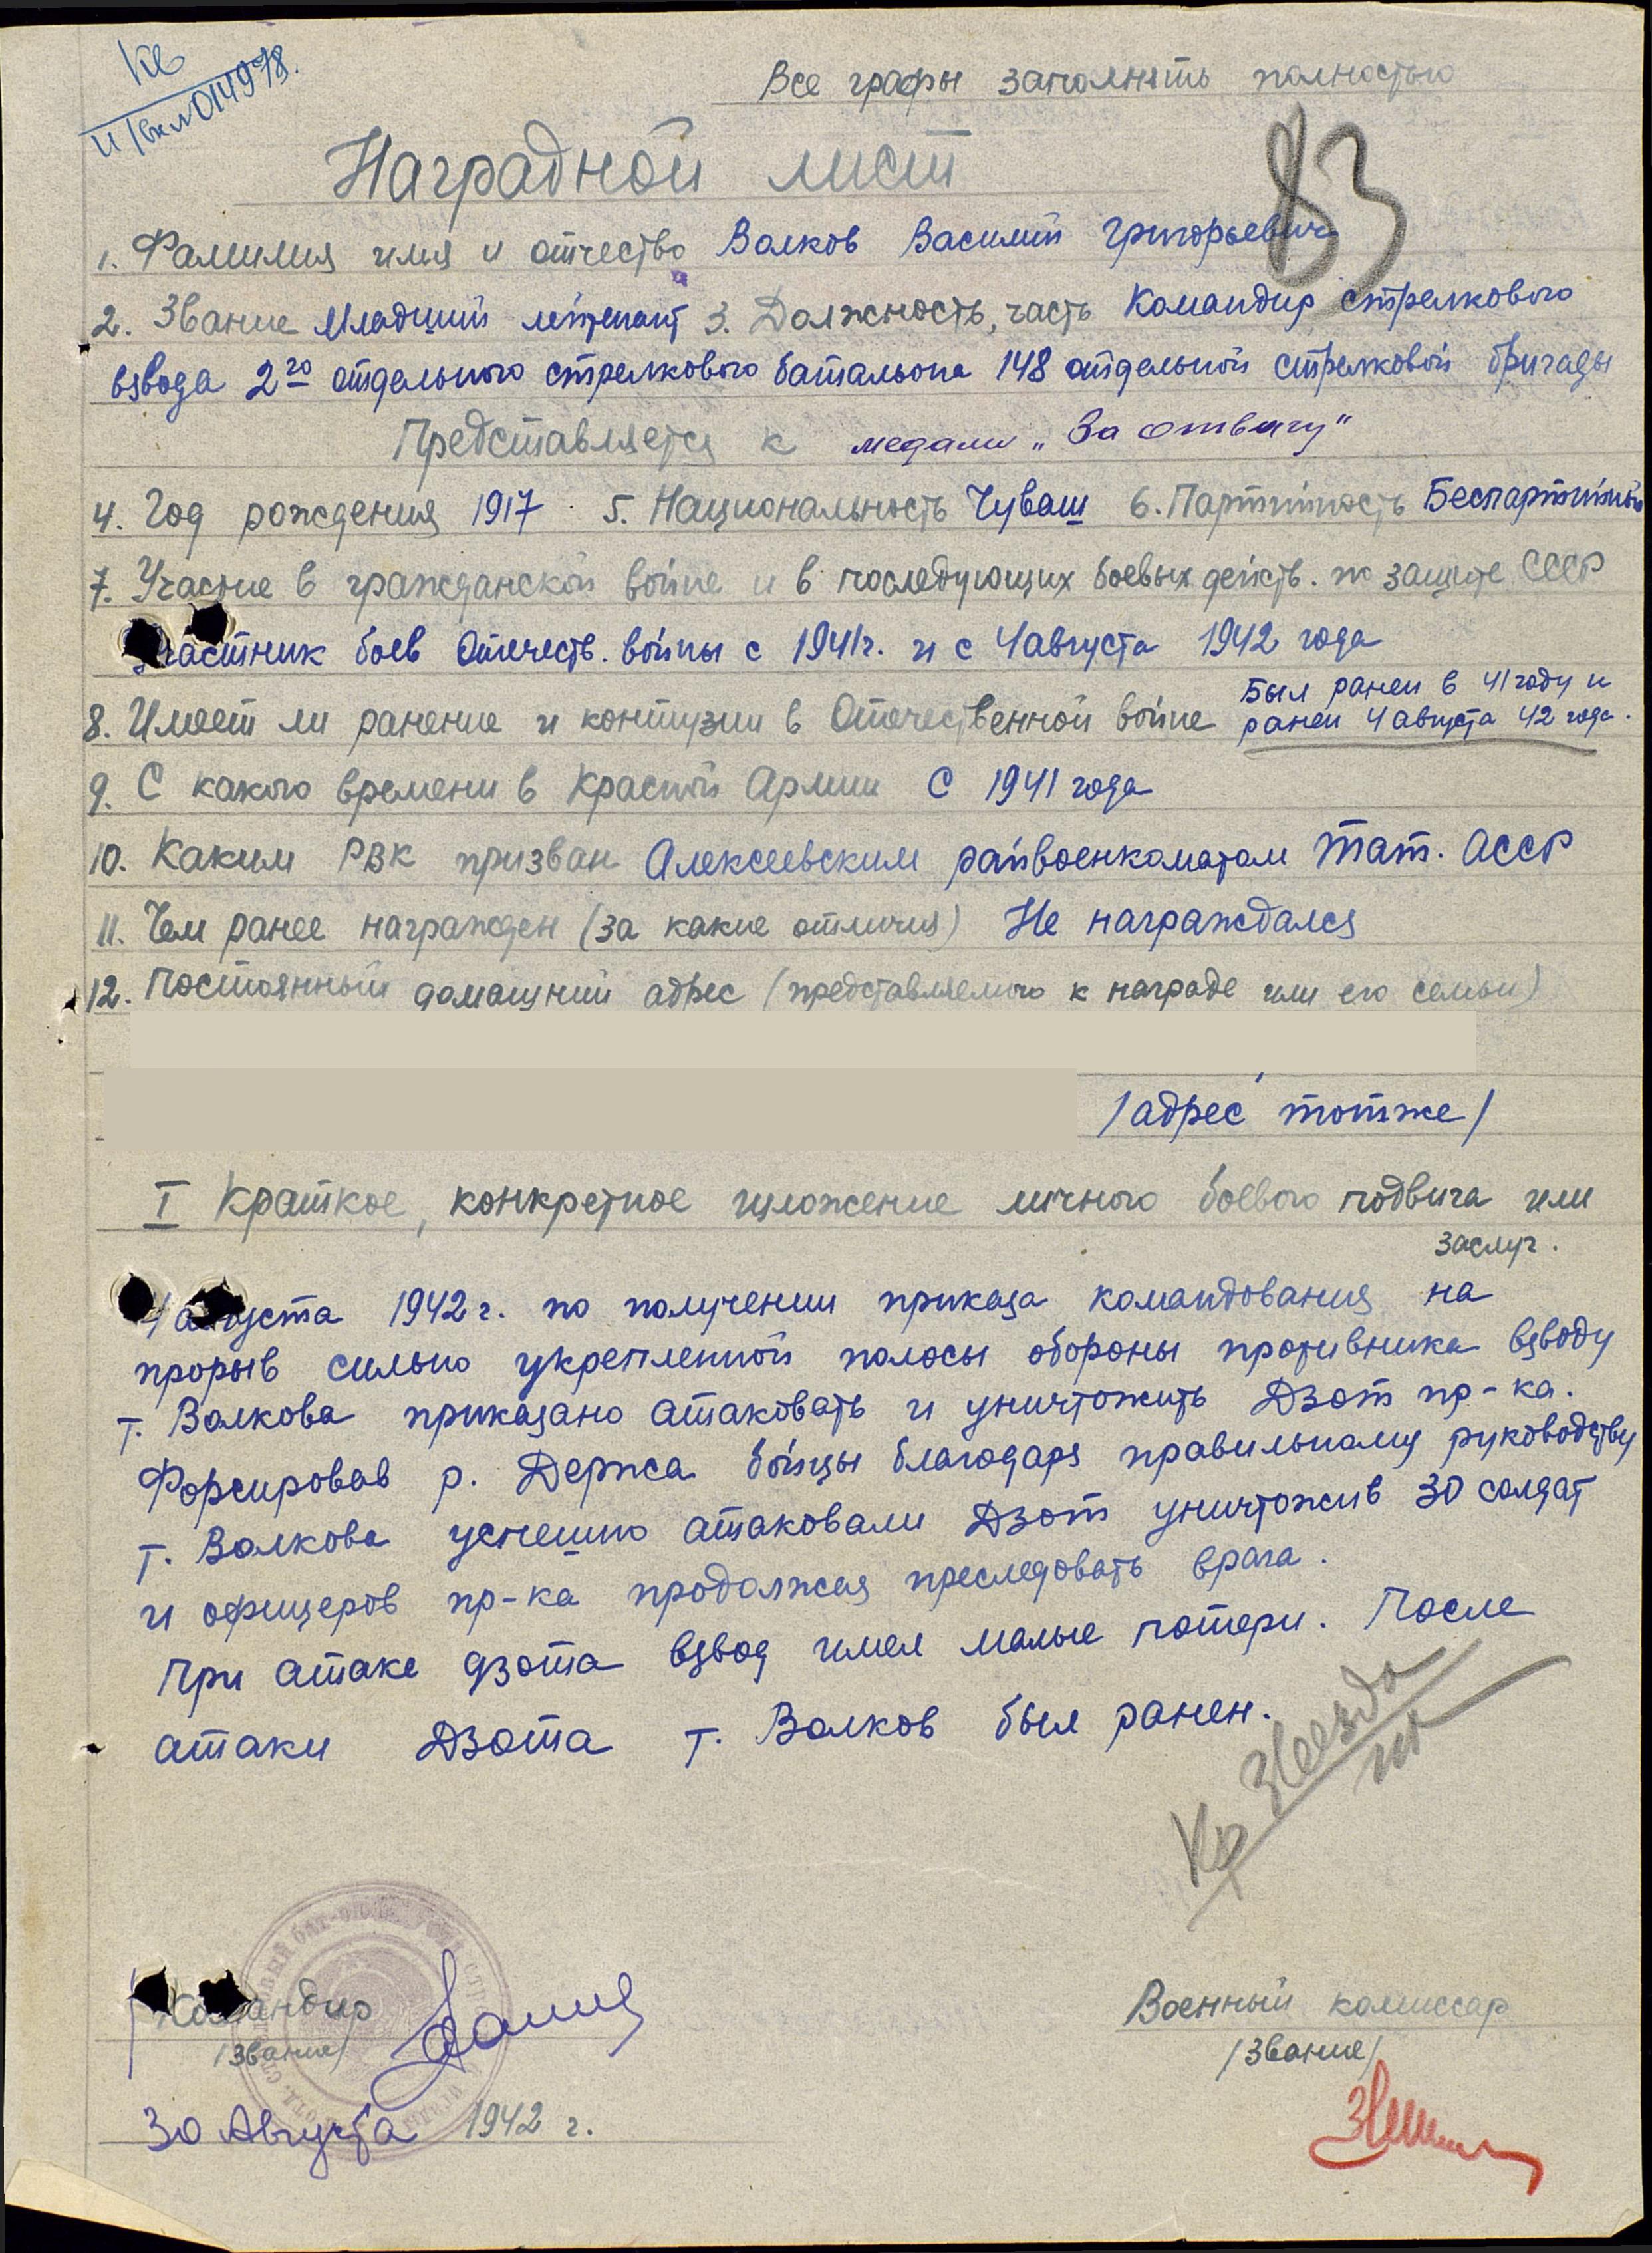 Кв
Все графы заполнять полностью
83
Наградной лист
1. Фамилия имя и отчество Волков Василий Григорьевич
2. Звание Младший лейтенант 3. Должность, часть Командир стрелкового
взвода 2го отдельного стрелкового батальона 148 отдельной стрелковой бригады
Представляется к медали „За отвагу"
4. Год рождения 1917 5. Национальность Чуваш 6. Партийность Беспартийный
7. Участие в гражданской войне и в последующих боевых действ. по защите СССР
Участник боев Отечеств. войны с 1941г. и с 4 августа 1942 года
8. Имеет ли ранение и контузии в Отечественной войне Был ранен в 41 году и
ранен 4 августа 42 года.
9. С какого времени в Красной Армии С 1941 года
10. Каким РВК призван Алексеевским райвоенкоматом Тат. АССР
11. Чем ранее награжден (за какие отличия) Не награждался
12. Постоянный домашний адрес (представляемого к награде или его семьи)
/адрес тотже/
I Краткое, конкретное изложение личного боевого подвига или
заслуг.
4 августа 1942 г. по получении приказа командования на
прорыв сильно укрепленной полосы обороны противника взводу
т. Волкова приказано атаковать и уничтожить Дзот пр-ка.
Форсировав р. Держа бойцы благодаря правильному руководству
т. Волкова успешно атаковали Дзот уничтожив 30 солдат
и офицеров пр-ка продолжая преследовать врага.
При атаке дзота взвод имел малые потери. После
атаки Дзота т. Волков был ранен.
Кр Звезда
Командир
/звание/
Военный комиссар
/звание/
30 Августа 1942 г.